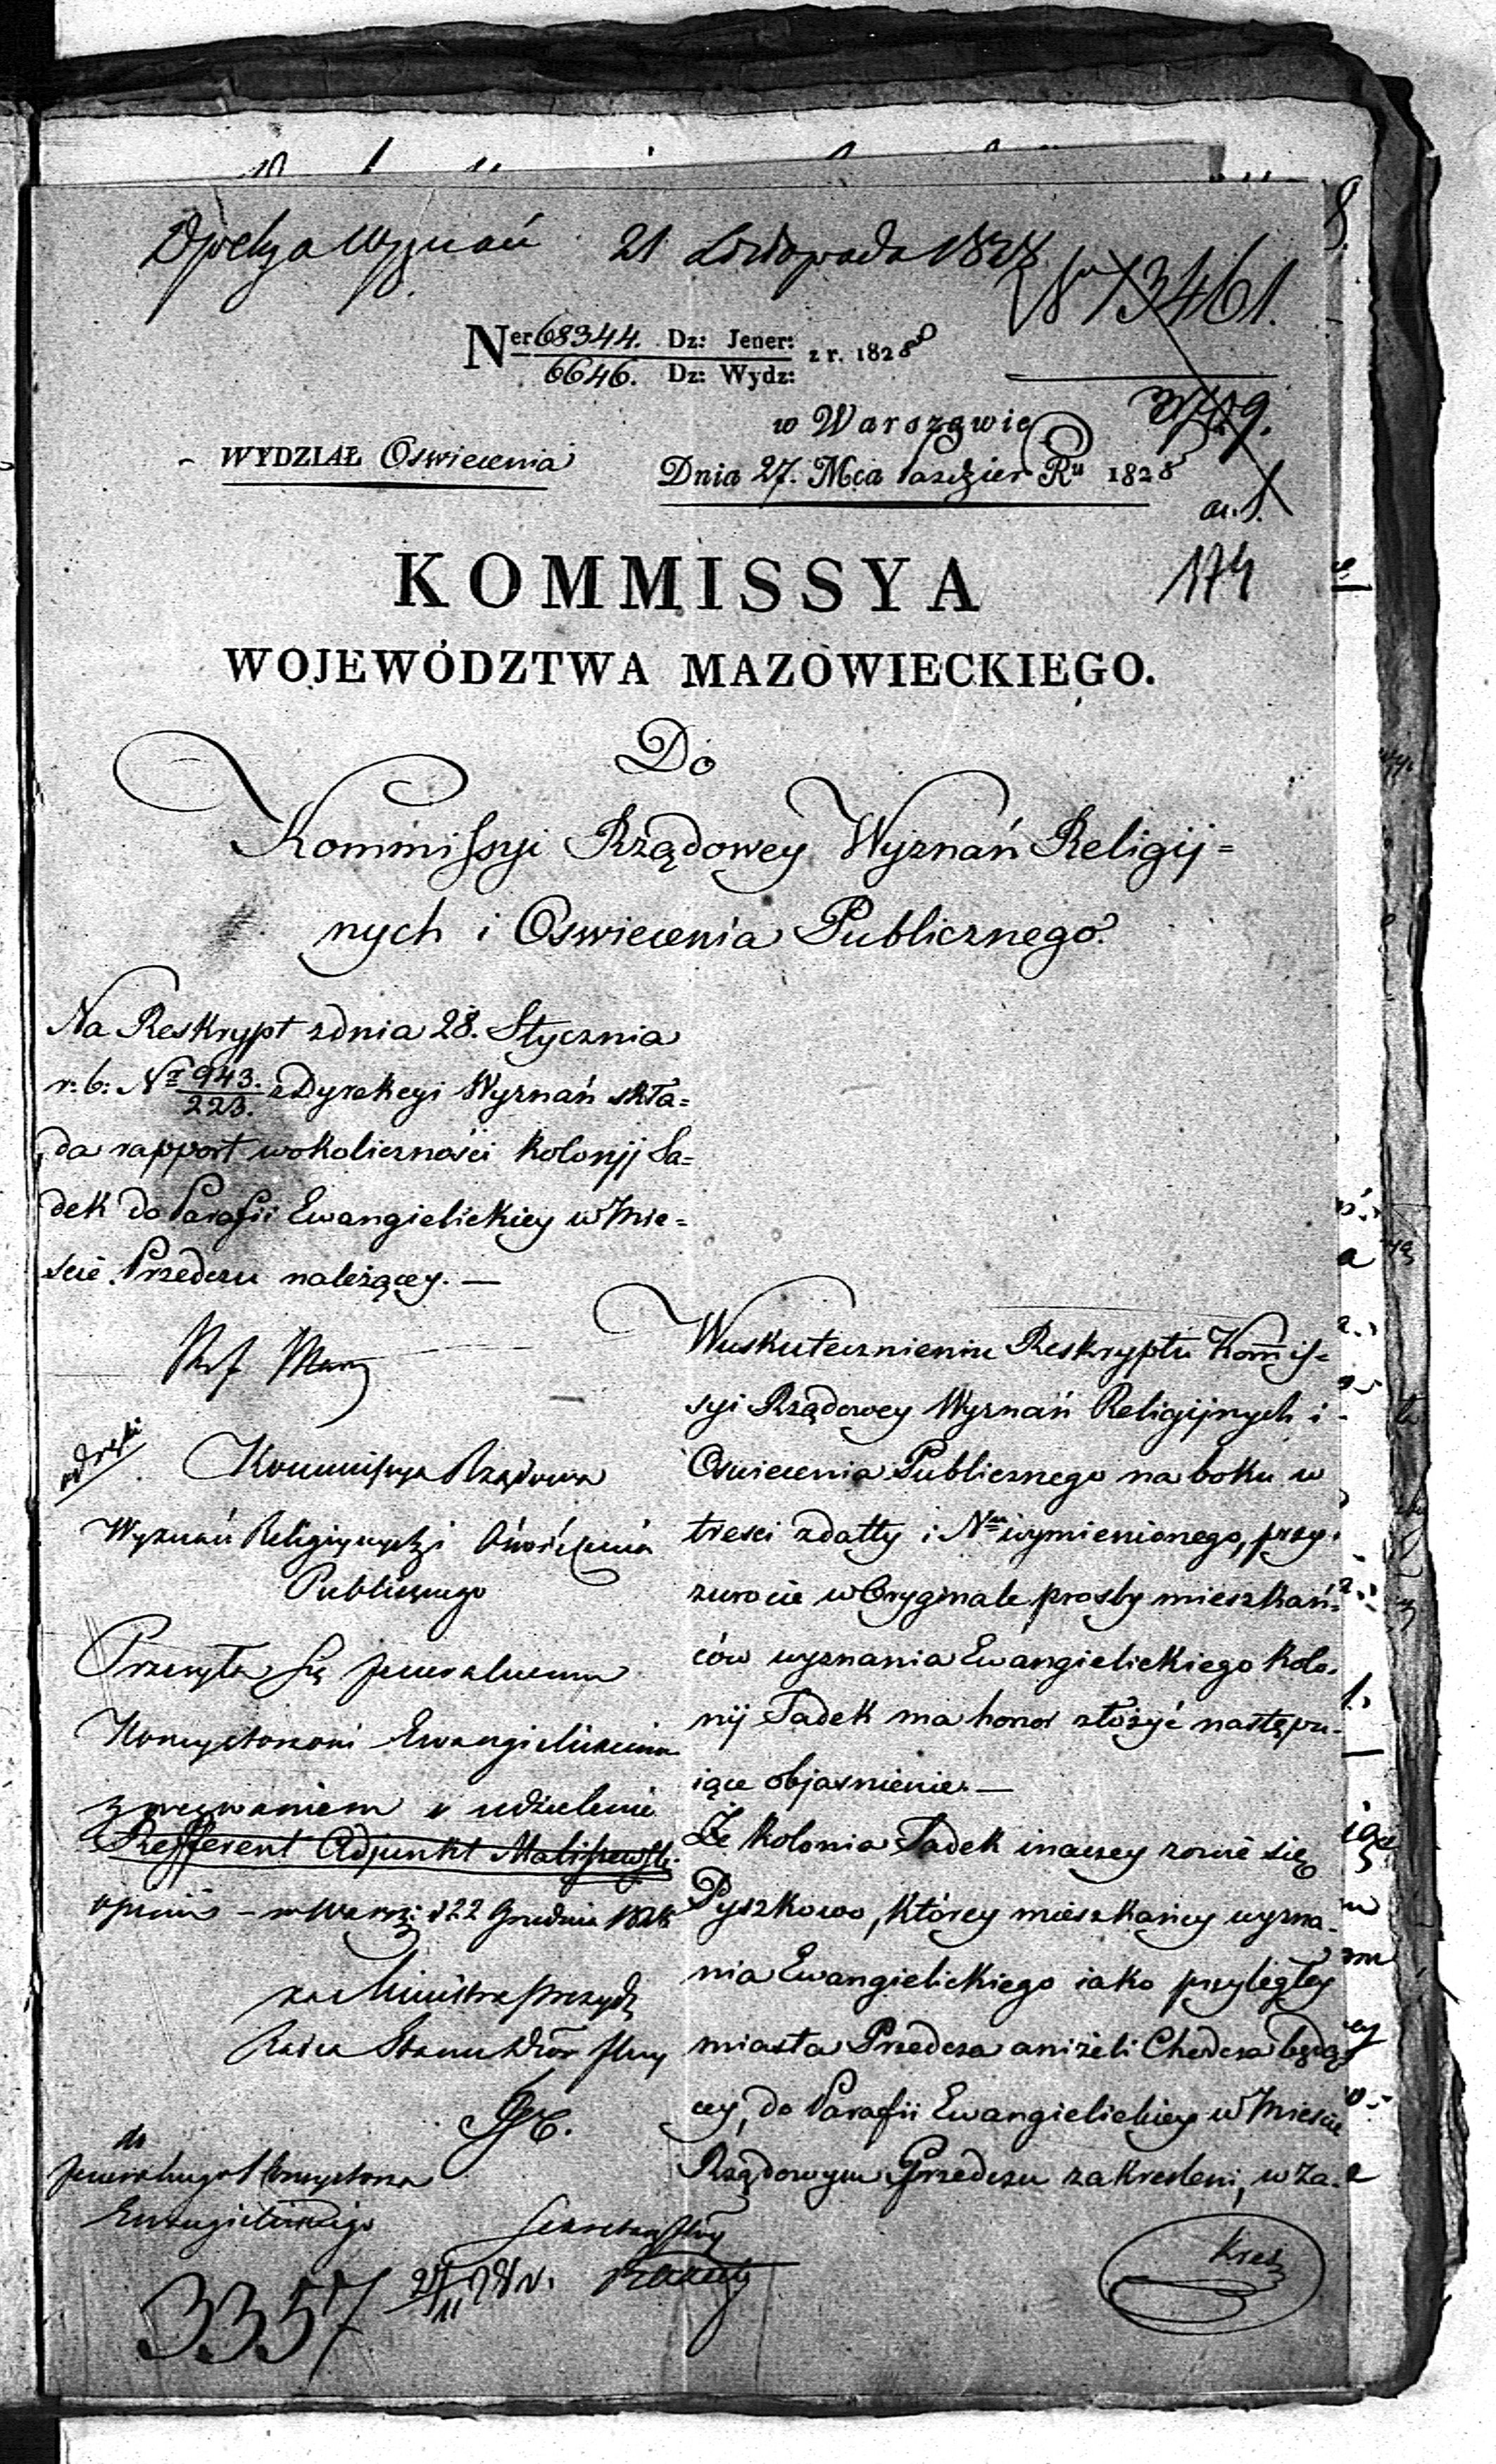 21 Listopada 1828
N 13461.
Ner 68344. Dz: Jener: z r. 1828
6646. Dz: Wydz:
w Warszawie
WYDZIAŁ Oswiecenia
Dnia 27. Mca Pazdzier Ru 1828
174
KOMMISSYA
WOJEWÓDZTWA MAZOWIECKIEGO.
Do
Kommissyi Rządowey Wyznań Religij=
nych i Oswiecenia Publicznego.
Na Reskrypt z dnia 28. Stycznia
r. b. Nr 943. z Dyrekcyi Wyznań skła=
223.
da rapport w okoliczności kolonij Sa=
dek do Parafii Ewangielickiey w Mie=
scie Przedczu należącey. —
W uskutecznieniu Reskryptu Kommis=
syi Rządowey Wyznań Religijnych i
Oswiecenia Publicznego na boku w
tresci z datty i Nru wymienionego, przy
zwrocie w Oryginale prosby mieszkań=
ców wyznania Ewangielickiego kolo=
nij Sadek ma honor złożyć następu=
iące objasnienie. —
Że kolonia Sadek inaczey zowie się
Pyszkowo, którey mieszkańcy wyzna=
nia Ewangielickiego iako przyległey
miasta Przedcza aniżeli Chodcza będą=
cey, do Parafii Ewangielickiey w Miescie
Rządowym Przedczu zakresleni, w za=
Kommissya Rządowa
Wyznań Religijnych i Oświecenia
Publicznego
Przesyła się Jeneralnemu
Konsystorzowi Ewangielickiemu
z wezwaniem o udzielenie
Refferent Adjunkt Maliszewski
opinii – w Warsz: d 22 Grudnia 1828
za Ministra Prezyd
Radca Stanu
do
Jeneralnego Konsystorza
Ewangielickiego
Sekretarz
3357
Kres